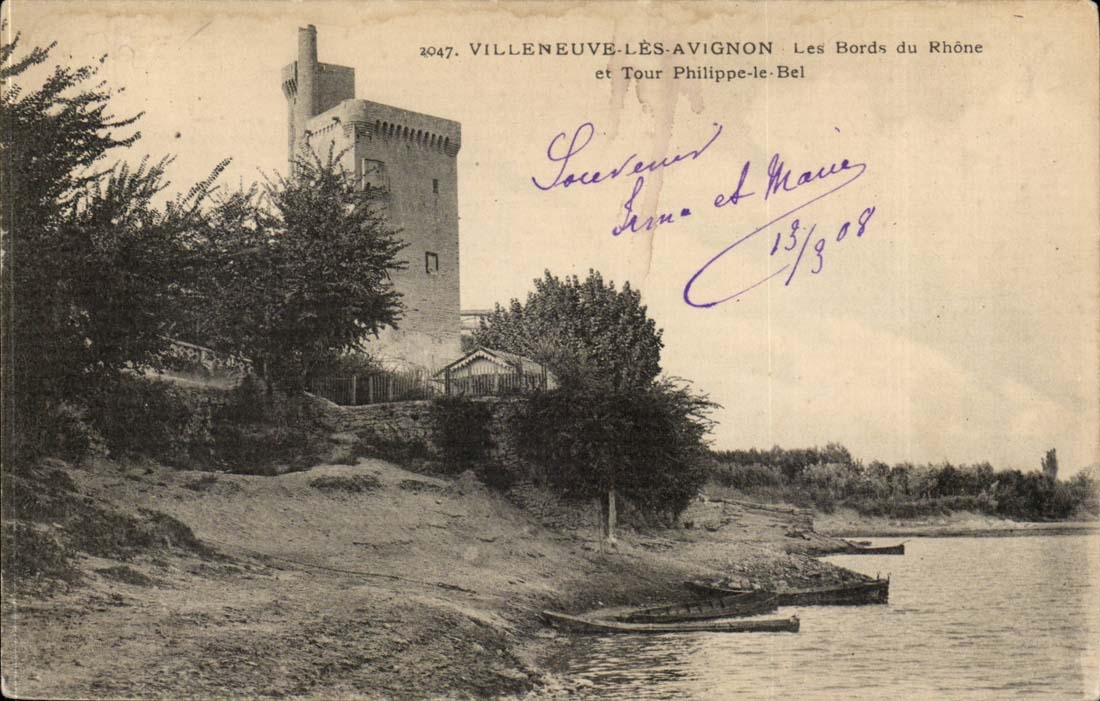 2047. VILLENEUVE-LÈS-AVIGNON Les Bords du Rhône
et Tour Philippe-le-Bel
Souvenir
Irma et Marie
13/3 08